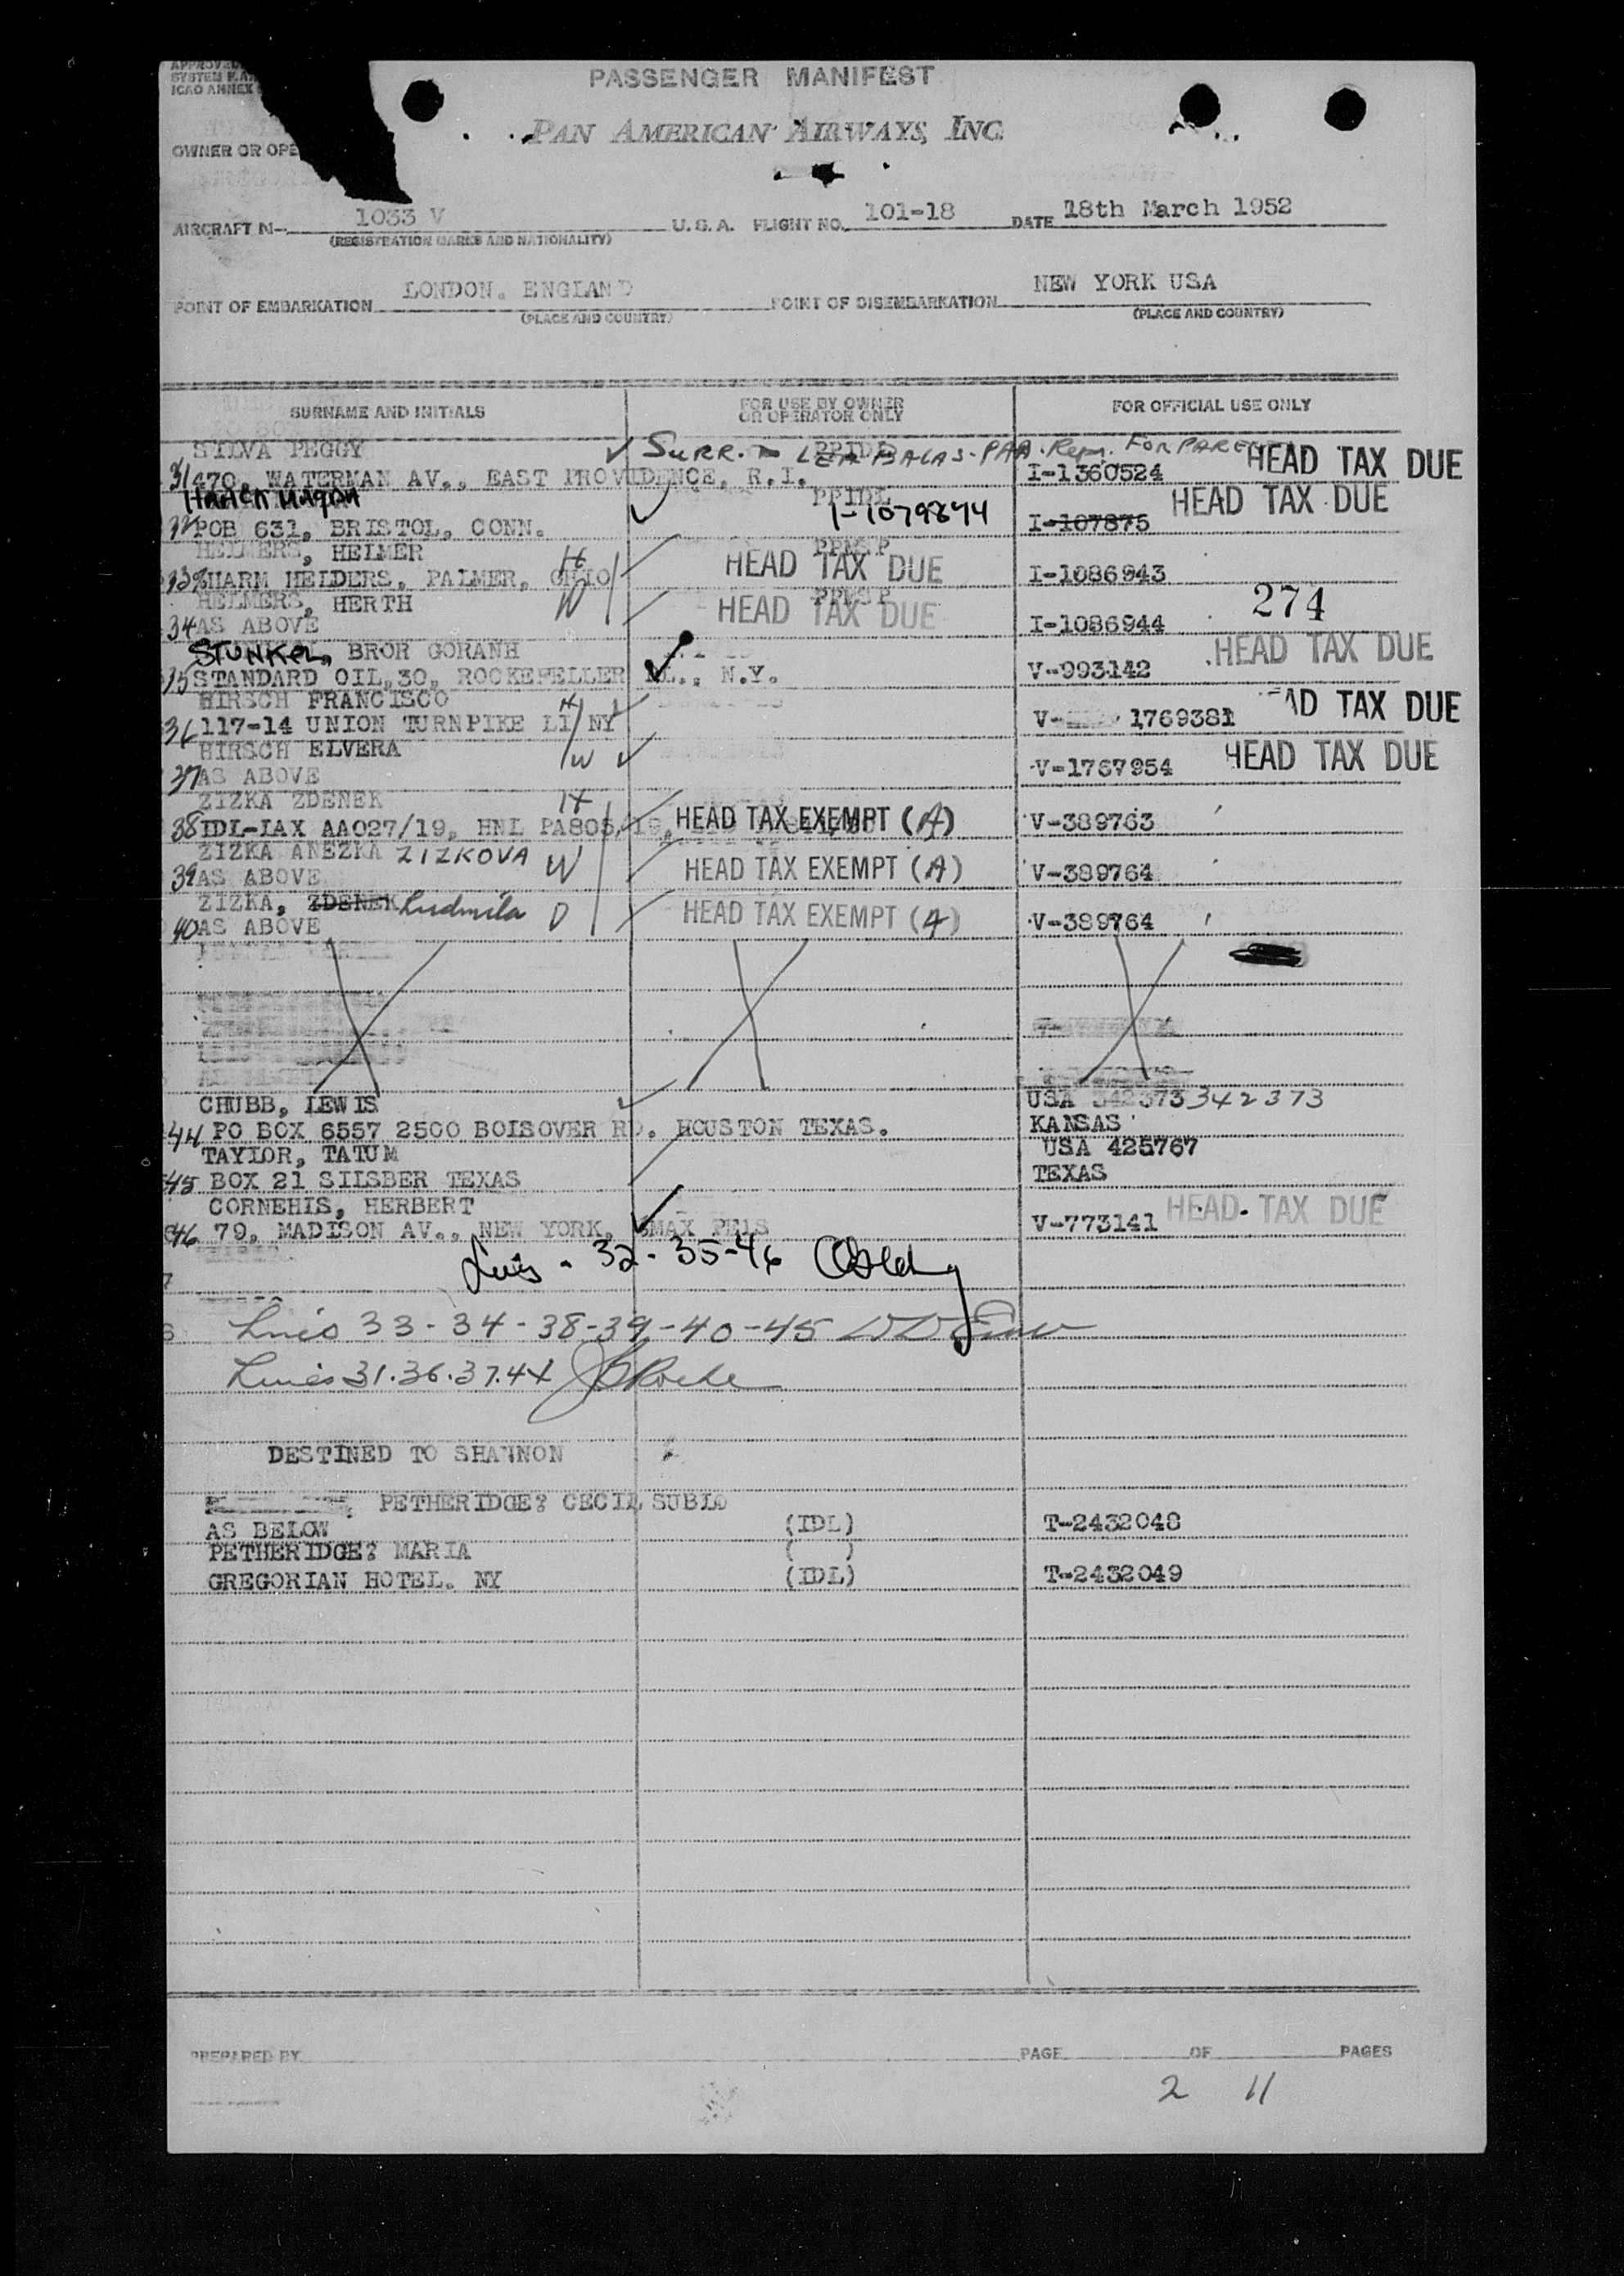 PASSENGER MANIFEST
PAN AMERICAN AIRWAYS, INC.
SYSTEM
ICAO ANNEX
OWNER OR OPE
AIRCRAFT N- 1033 V U.S.A. FLIGHT NO. 101-18 DATE 18th March 1952
(REGISTRATION MARKS AND NATIONALITY)
POINT OF EMBARKATION LONDON. ENGLAND POINT OF DISEMBARKATION NEW YORK USA
(PLACE AND COUNTRY) (PLACE AND COUNTRY)
SURNAME AND INITIALS FOR USE BY OWNER OR OPERATOR ONLY FOR OFFICIAL USE ONLY
SILVA PEGGY SURR. PAA. Repr. FOR PARENT
31 470, WATERMAN AV., EAST PROVIDENCE, R.I. I-1360524 HEAD TAX DUE
32 POB 631, BRISTOL, CONN. I-1079874 I-107875 HEAD TAX DUE
HELMERS, HELMER H
33 % HARM HELDERS, PALMER, OHIO HEAD TAX DUE I-1086943
HELMERS, HERTH W
34 AS ABOVE HEAD TAX DUE I-1086944 274
STUNKEL, BROR GORANH
35 STANDARD OIL, 30, ROCKEFELLER PL., N.Y. V-993142 HEAD TAX DUE
HIRSCH FRANCISCO H
36 117-14 UNION TURNPIKE LI NY V- 1769381 AD TAX DUE
HIRSCH ELVERA W
37 AS ABOVE V-1767954 HEAD TAX DUE
ZIZKA ZDENEK H
38 IDL-IAX AA027/19, HNL PA805/19, HEAD TAX EXEMPT (A) V-389763
ZIZKA ANEZKA ZIZKOVA W
39 AS ABOVE HEAD TAX EXEMPT (A) V-389764
ZIZKA, ZDENEK Ludmila D
40 AS ABOVE HEAD TAX EXEMPT (A) V-389764
CHUBB, LEWIS USA 342373 342373
44 PO BOX 6557 2500 BOISOVER RD. HOUSTON TEXAS. KANSAS
TAYLOR, TATUM USA 425767
45 BOX 21 SIISBER TEXAS TEXAS
CORNEHIS, HERBERT
46 79, MADISON AV., NEW YORK, %MAX PEIS V-773141 HEAD TAX DUE
Lines - 32-35-46
Lines 33-34-38-39-40-45
Lines 31.36.37.44
DESTINED TO SHANNON
PETHERIDGE? CECIL SUBLO
AS BELOW (IDL) T-2432048
PETHERIDGE? MARIA ( )
GREGORIAN HOTEL. NY (IDL) T-2432049
PREPARED BY PAGE 2 OF 11 PAGES